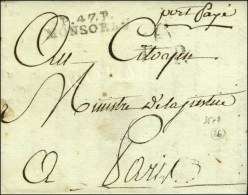 port Payé
P.47.P.
MONSOR
Au Citoyen
Ministre de la justice
A Paris